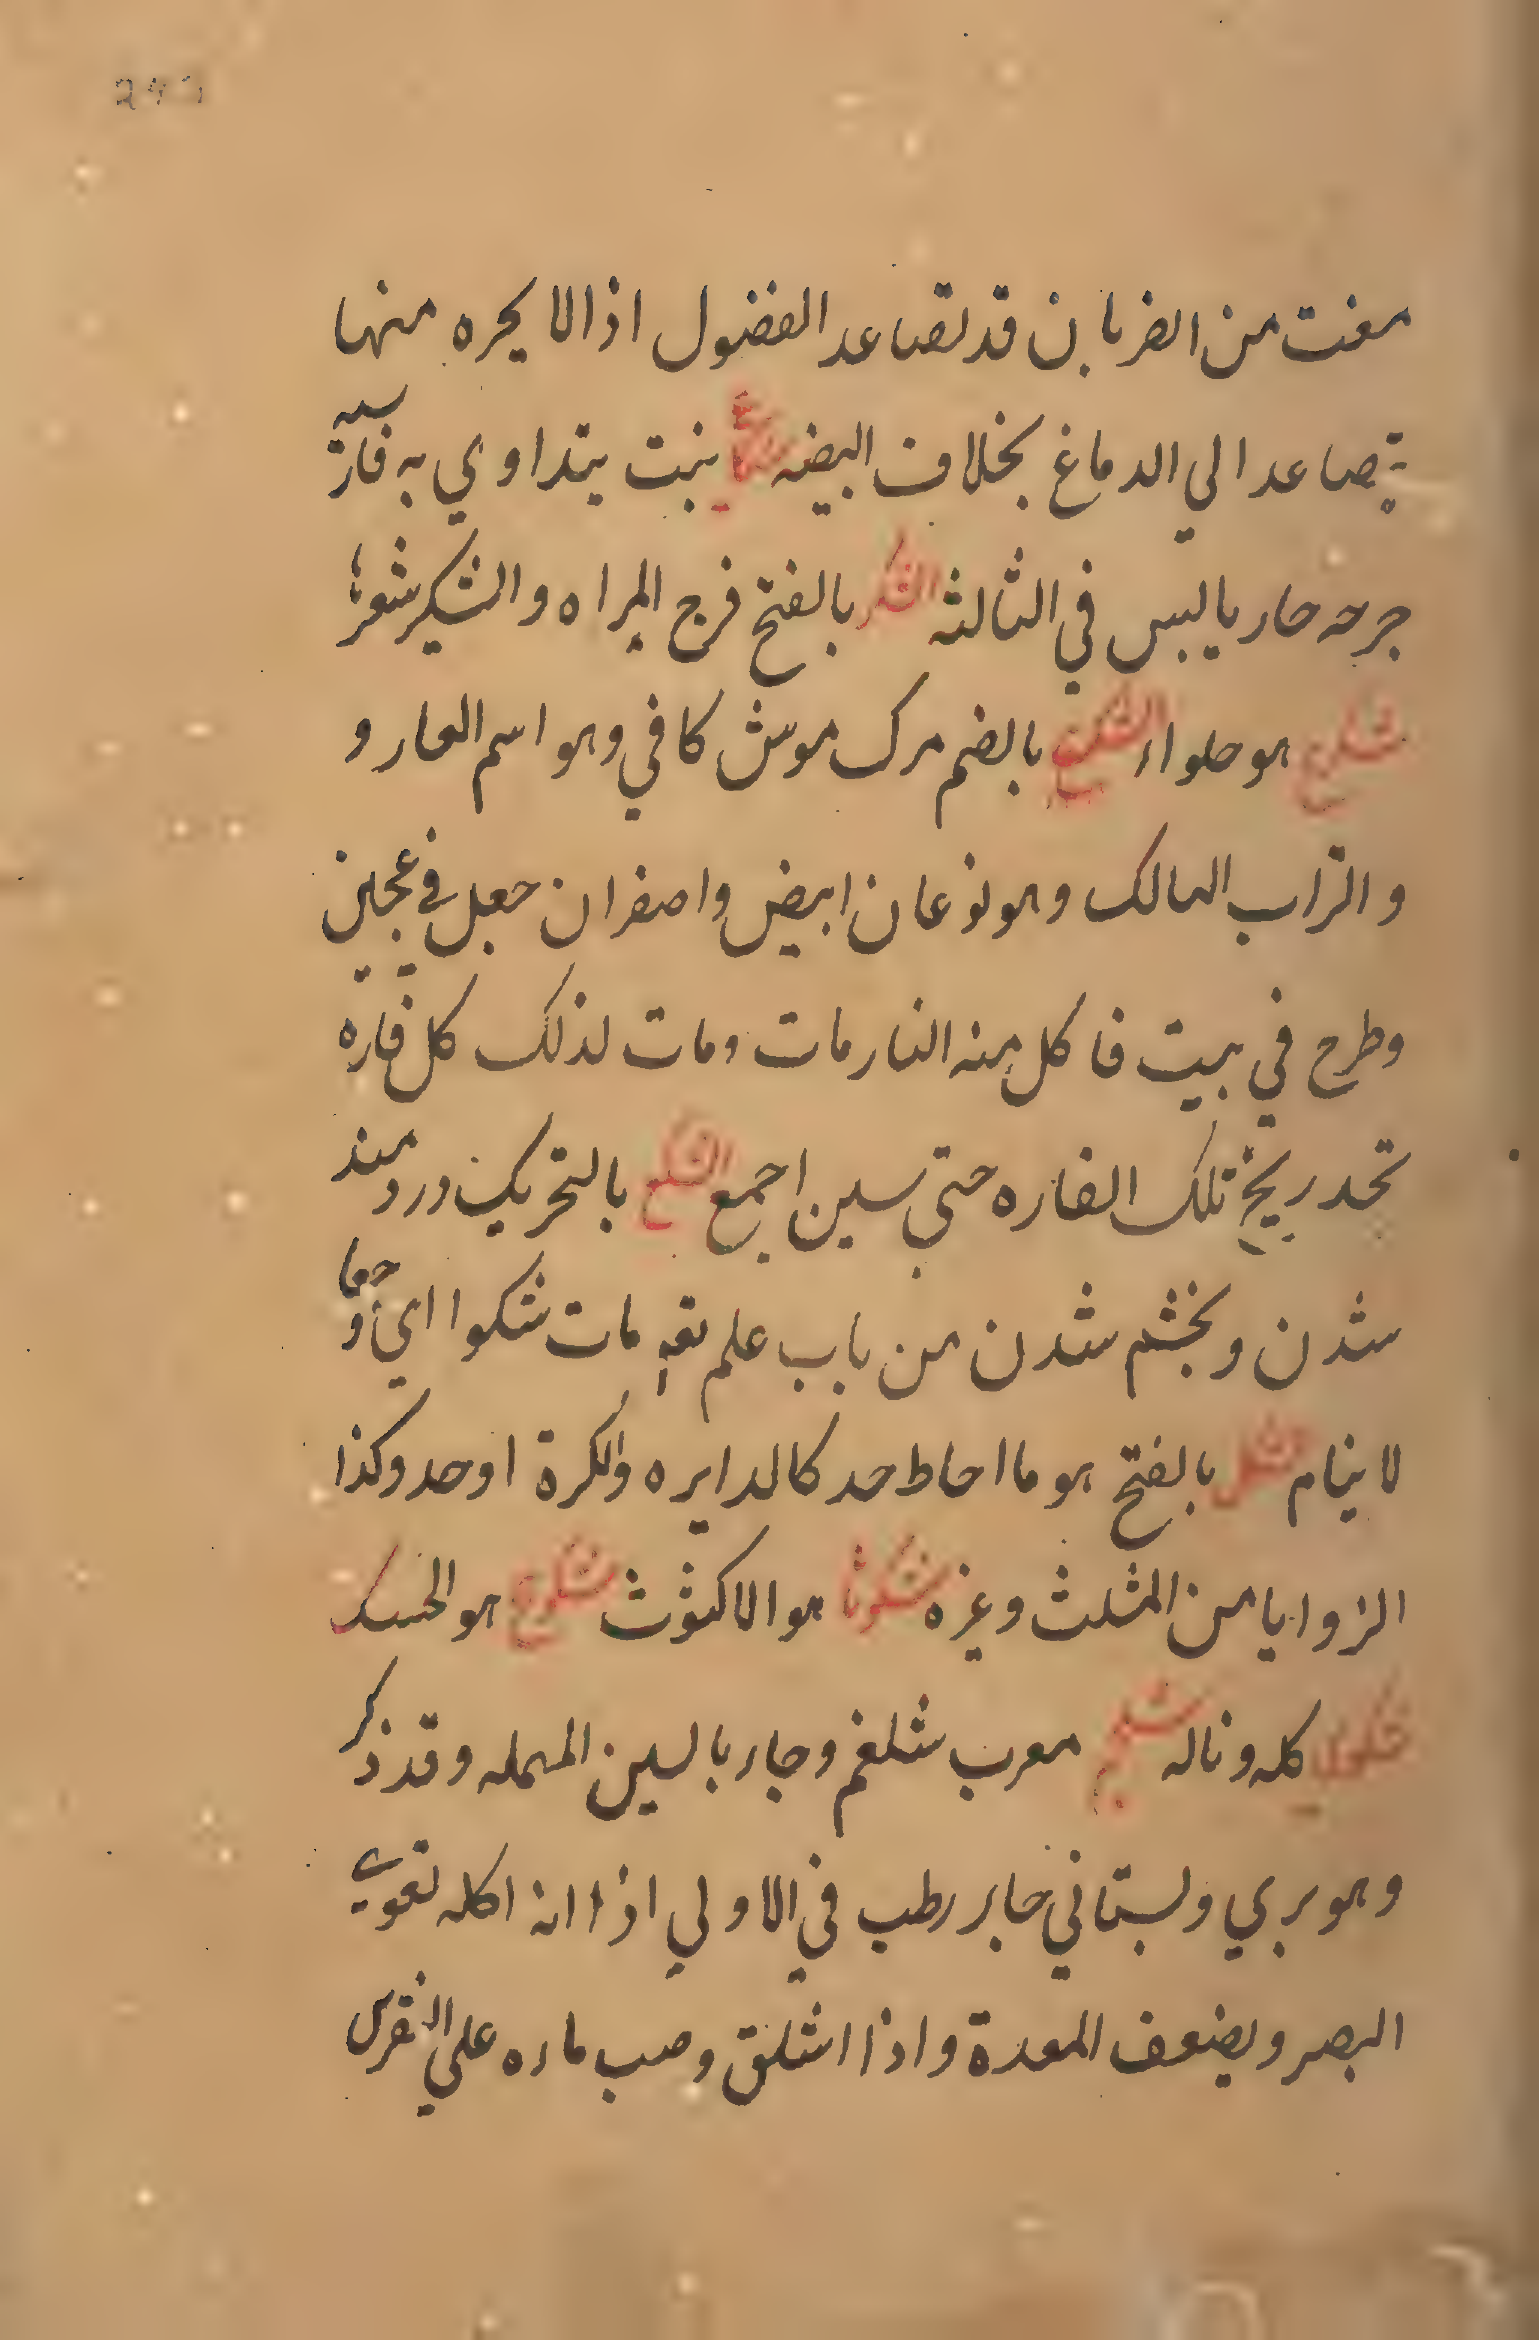 معنت من الضربان قد تصاعد الفضول اذ الا يحره منها
يتصاعد الي الدماغ بخلاف البيضه نبت يتداوي به فارسيه
جرحه حار يابس في الثالثه الشكر بالفتح فرج المراه والشكير شعرها
هو حلواء بالضم مرك موش كافي وهو اسم العار و
والتراب الهالك وهو نوعان ابيض واصفر ان جعل في عجين
وطرح في بيت فاكل منه الفار مات ومات لذلك كل فاره
تحد ريح تلك الفاره حتي سين اجمع الشكع بالتحريك دردمند
شدن وبخشم شدن من باب علم يقه مات شكوا اي وجعا
لا ينام شكل بالفتح هو ما احاط حد كالدايره والكرة او حد وكذا
الزوايا من المثلث وغيره شكوثا هو الاكشوث شكوهج هو الحسك
كله وناله شلجم معرب شلغم وجاء بالسين المهمله وقد ذكر
وهو بري وبستاني حار رطب في الاولي اذا انه اكله تقوي
البصر ويضعف المعدة واذا اشلق وصب ماءه علي النقرس